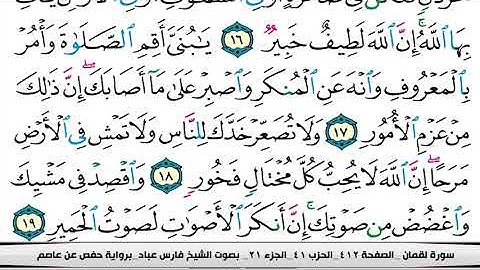 بِهَا ٱللَّهُ ۚ إِنَّ ٱللَّهَ لَطِيفٌ خَبِيرٌ ١٦ يَٰبُنَىَّ أَقِمِ ٱلصَّلَوٰةَ وَأْمُرْ
بِٱلْمَعْرُوفِ وَٱنْهَ عَنِ ٱلْمُنكَرِ وَٱصْبِرْ عَلَىٰ مَآ أَصَابَكَ ۖ إِنَّ ذَٰلِكَ
مِنْ عَزْمِ ٱلْأُمُورِ ١٧ وَلَا تُصَعِّرْ خَدَّكَ لِلنَّاسِ وَلَا تَمْشِ فِى ٱلْأَرْضِ
مَرَحًا ۖ إِنَّ ٱللَّهَ لَا يُحِبُّ كُلَّ مُخْتَالٍ فَخُورٍ ١٨ وَٱقْصِدْ فِى مَشْيِكَ
وَٱغْضُضْ مِن صَوْتِكَ ۚ إِنَّ أَنكَرَ ٱلْأَصْوَٰتِ لَصَوْتُ ٱلْحَمِيرِ ١٩
سورة لقمان _ الصفحة ٤١٢ _ الحزب ٤١ _ الجزء ٢١ _ بصوت الشيخ فارس عباد _ برواية حفص عن عاصم